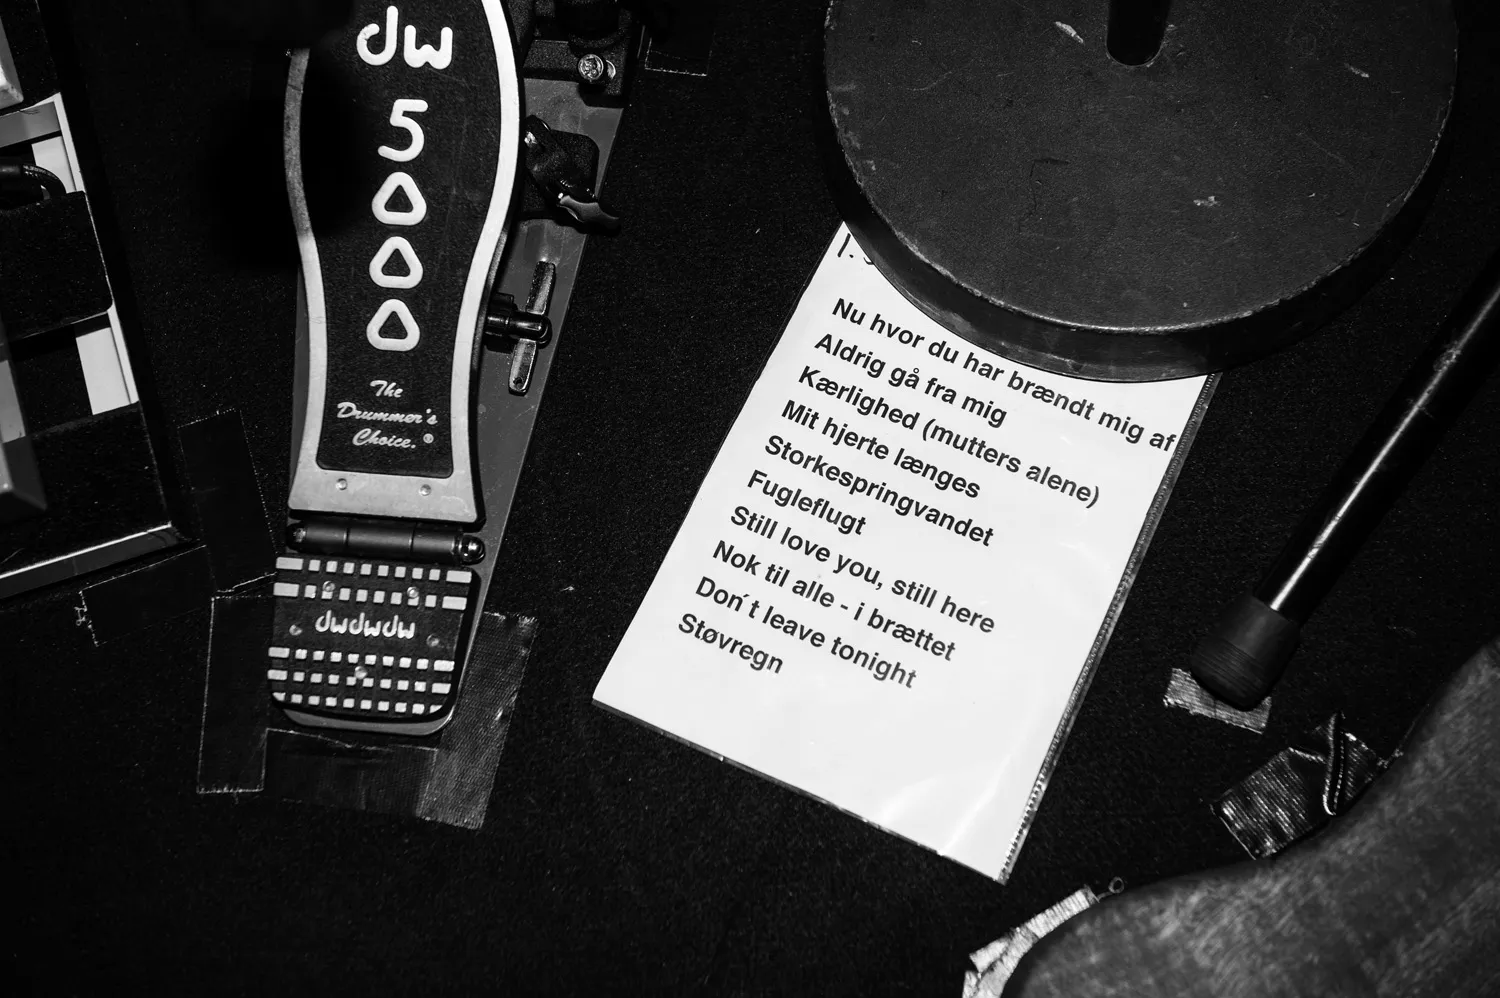 dw
5000
The
Drummer's
Choice.®
dwdwdw
1.
Nu hvor du har brændt mig af
Aldrig gå fra mig
Kærlighed (mutters alene)
Mit hjerte længes
Storkespringvandet
Fugleflugt
Still love you, still here
Nok til alle - i brættet
Don´t leave tonight
Støvregn